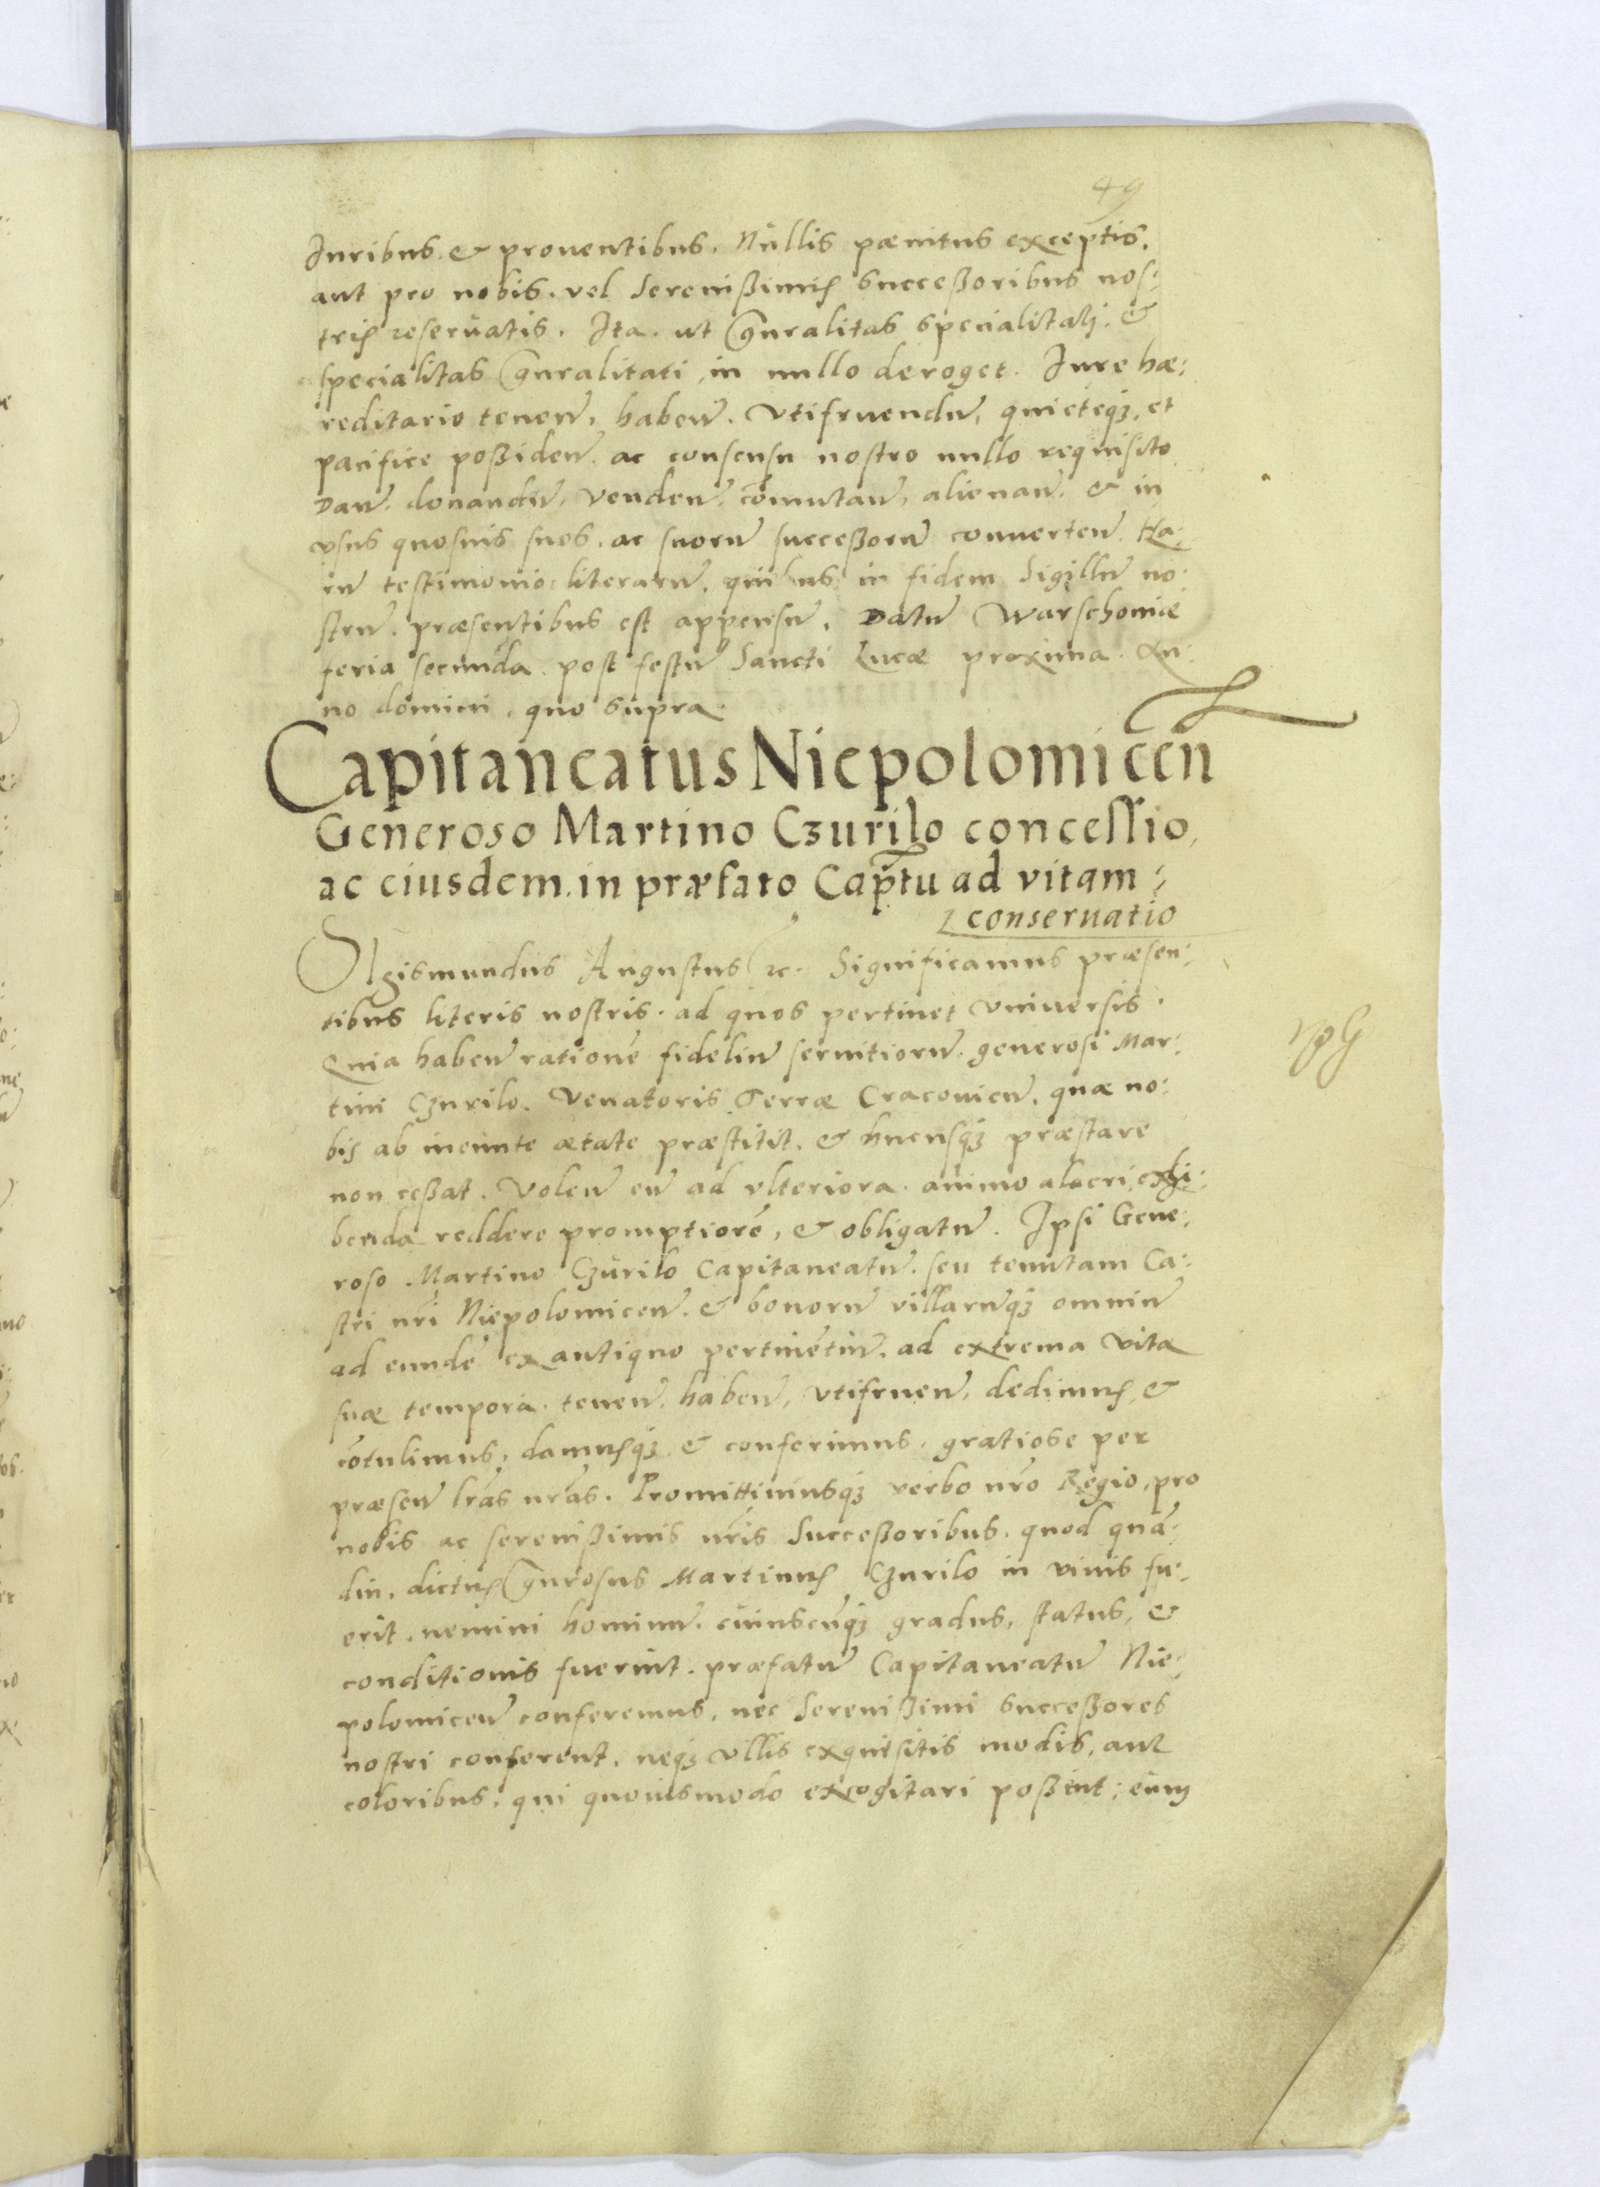 49
Iuribus & prouentibus. Nullis pænitus exceptis,
aut pro nobis, vel Sereniſsimis succeſsoribus nos:
tris reseruatis. Ita. ut Gn̄ralitas specialitati, &
specialitas Gn̄ralitati, in nullo deroget. Iure hæ:
reditario tenen̄, haben̄, vtifruendū, quieteqꝫ, et
pacifice poſsiden̄, ac consensu nostro nullo requisito
Dan̄, donandū, venden̄, cōmutan̄, alienan̄, & in
vsus quosuis suos, ac suorū succeſsorū conuerten̄. Ha:
rū testimonio literarū, quibus in fidem Sigillū no:
strū, præsentibus est appensū. Datū Warschouiæ
feria secunda post festū Sancti Lucæ proxima. An:
no domini, quo supra.
Capitaneatus Niepolomicen̄
Generoso Martino Czurilo concessio,
ac eiusdem in præfato Cap̄tu ad vitam
conseruatio
SIgismundus Augustus ꝛc. Significamus præsen:
tibus literis nostris, ad quos pertinet vniuersis.
Quia haben̄ rationē fideliū seruitiorū, generosi Mar:
tini Czurilo, Venatoris Terræ Cracouien̄, quæ no:
bis ab ineunte ætate præstitit, & hucusqꝫ præstare
non ceſsat. Volen̄ eū ad vlteriora animo alacri exhi:
benda reddere promptiorē, & obligatū. Ipsi Gene:
roso Martino Czurilo Capitaneatū seu tenutam Ca:
stri nr̄i Niepolomicen̄, & bonorū villarūqꝫ omniū
ad eundē ex antiquo pertinētiū, ad extrema vitæ
suæ tempora, tenen̄, haben̄, vtifruen̄, dedimus, &
cōtulimus, damusqꝫ & conferimus, gratiose per
præsen̄ lr̄as nr̄as. Promittimusqꝫ verbo nr̄o Regio, pro
nobis ac sereniſsimis nr̄is Succeſsoribus, quod quā:
diu, dictus Gn̄rosus Martinus Czurilo in viuis fu:
erit, nemini hominū, cuiuscūqꝫ gradus, status, &
conditionis fuerint, præfatū Capitaneatū Nie:
polomicen̄ conferemus, nec Sereniſsimi Succeſsores
nostri conferent, neqꝫ vllis exquisitis modis, aut
coloribus, qui quouismodo excogitari poſsint; eum